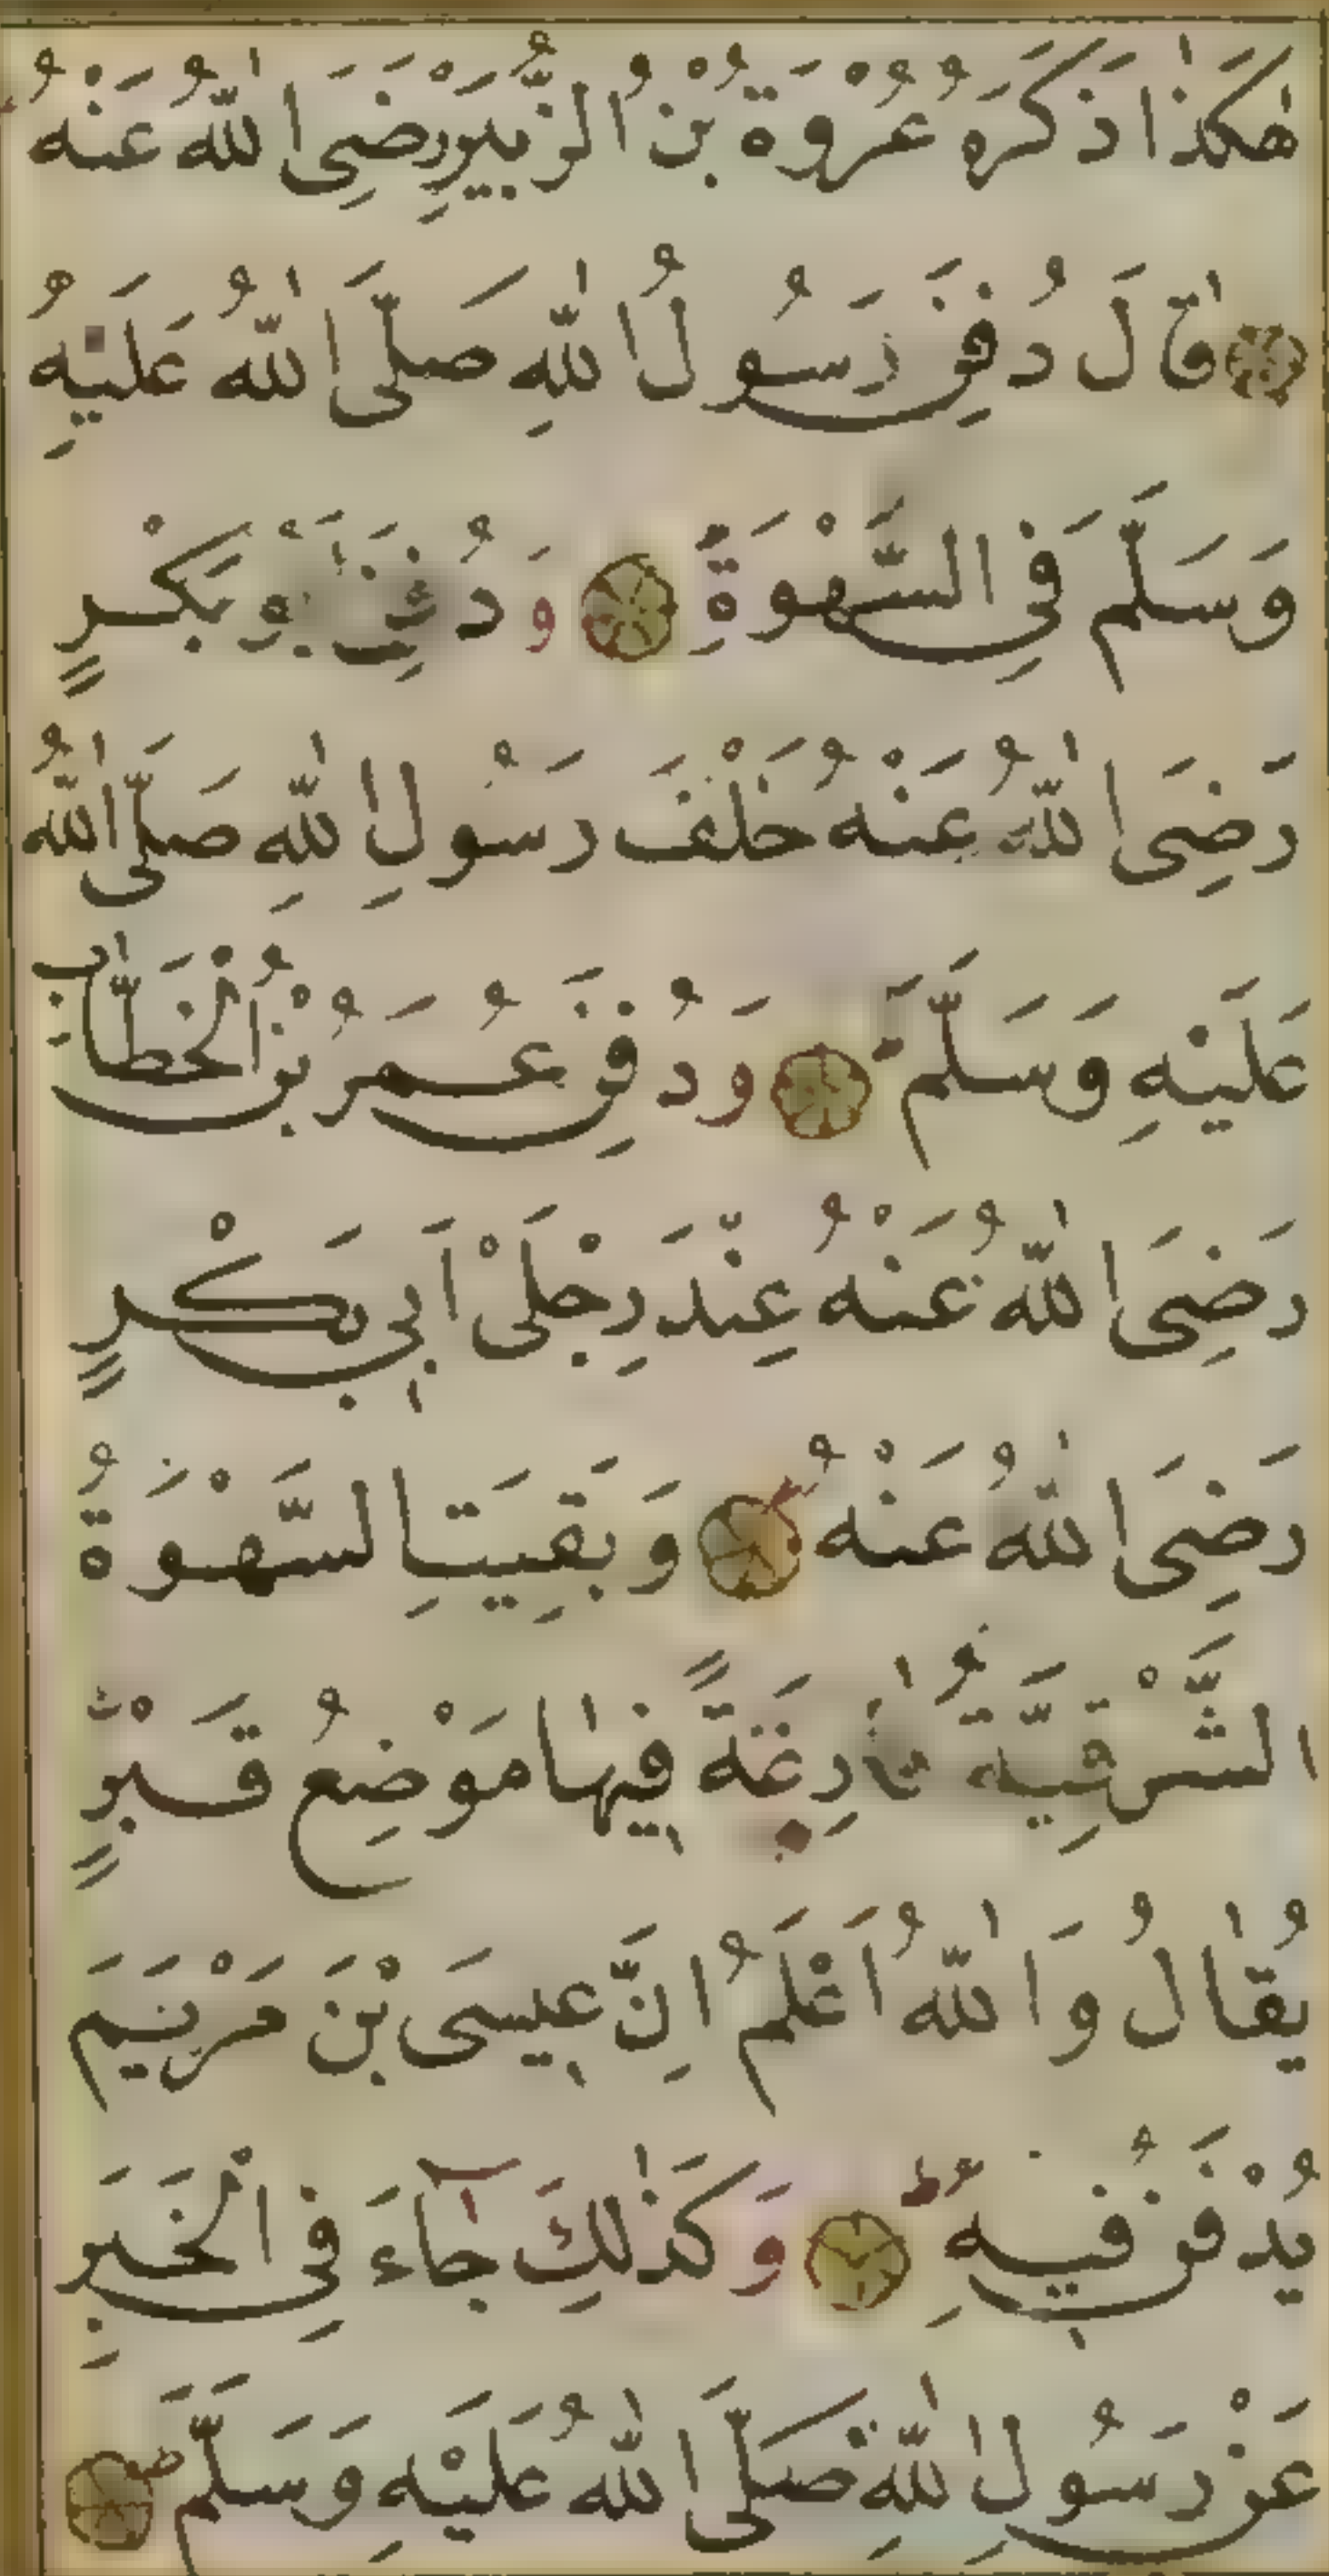 هٰكَذٰا ذَكَرَهُ عُرْوَةُ بْنُ الزُّبَيْرِ رَضِيَ اللّٰهُ عَنْهُ
قٰالَ دُفِنَ رَسُولُ اللّٰهِ صَلَّى اللّٰهُ عَلَيْهِ
وَسَلَّمَ فِي السَّهْوَةِ وَدُفِنَ اَبُو بَكْرٍ
رَضِيَ اللّٰهُ عَنْهُ خَلْفَ رَسُولِ اللّٰهِ صَلَّى اللّٰهُ
عَلَيْهِ وَسَلَّمَ وَدُفِنَ عُمَرُ بْنُ الْخَطَّابِ
رَضِيَ اللّٰهُ عَنْهُ عِنْدَ رِجْلَيْ اَبِي بَكْرٍ
رَضِيَ اللّٰهُ عَنْهُ وَبَقِيَتِ السَّهْوَةُ
الشَّرْقِيَّةُ فٰارِغَةً فِيهٰا مَوْضِعُ قَبْرٍ
يُقٰالُ وَاللّٰهُ اَعْلَمُ اِنَّ عِيسَى بْنَ مَرْيَمَ
يُدْفَنُ فِيهِ وَكَذٰلِكَ جٰٓاءَ فِي الْخَبَرِ
عَنْ رَسُولِ اللّٰهِ صَلَّى اللّٰهُ عَلَيْهِ وَسَلَّمَ